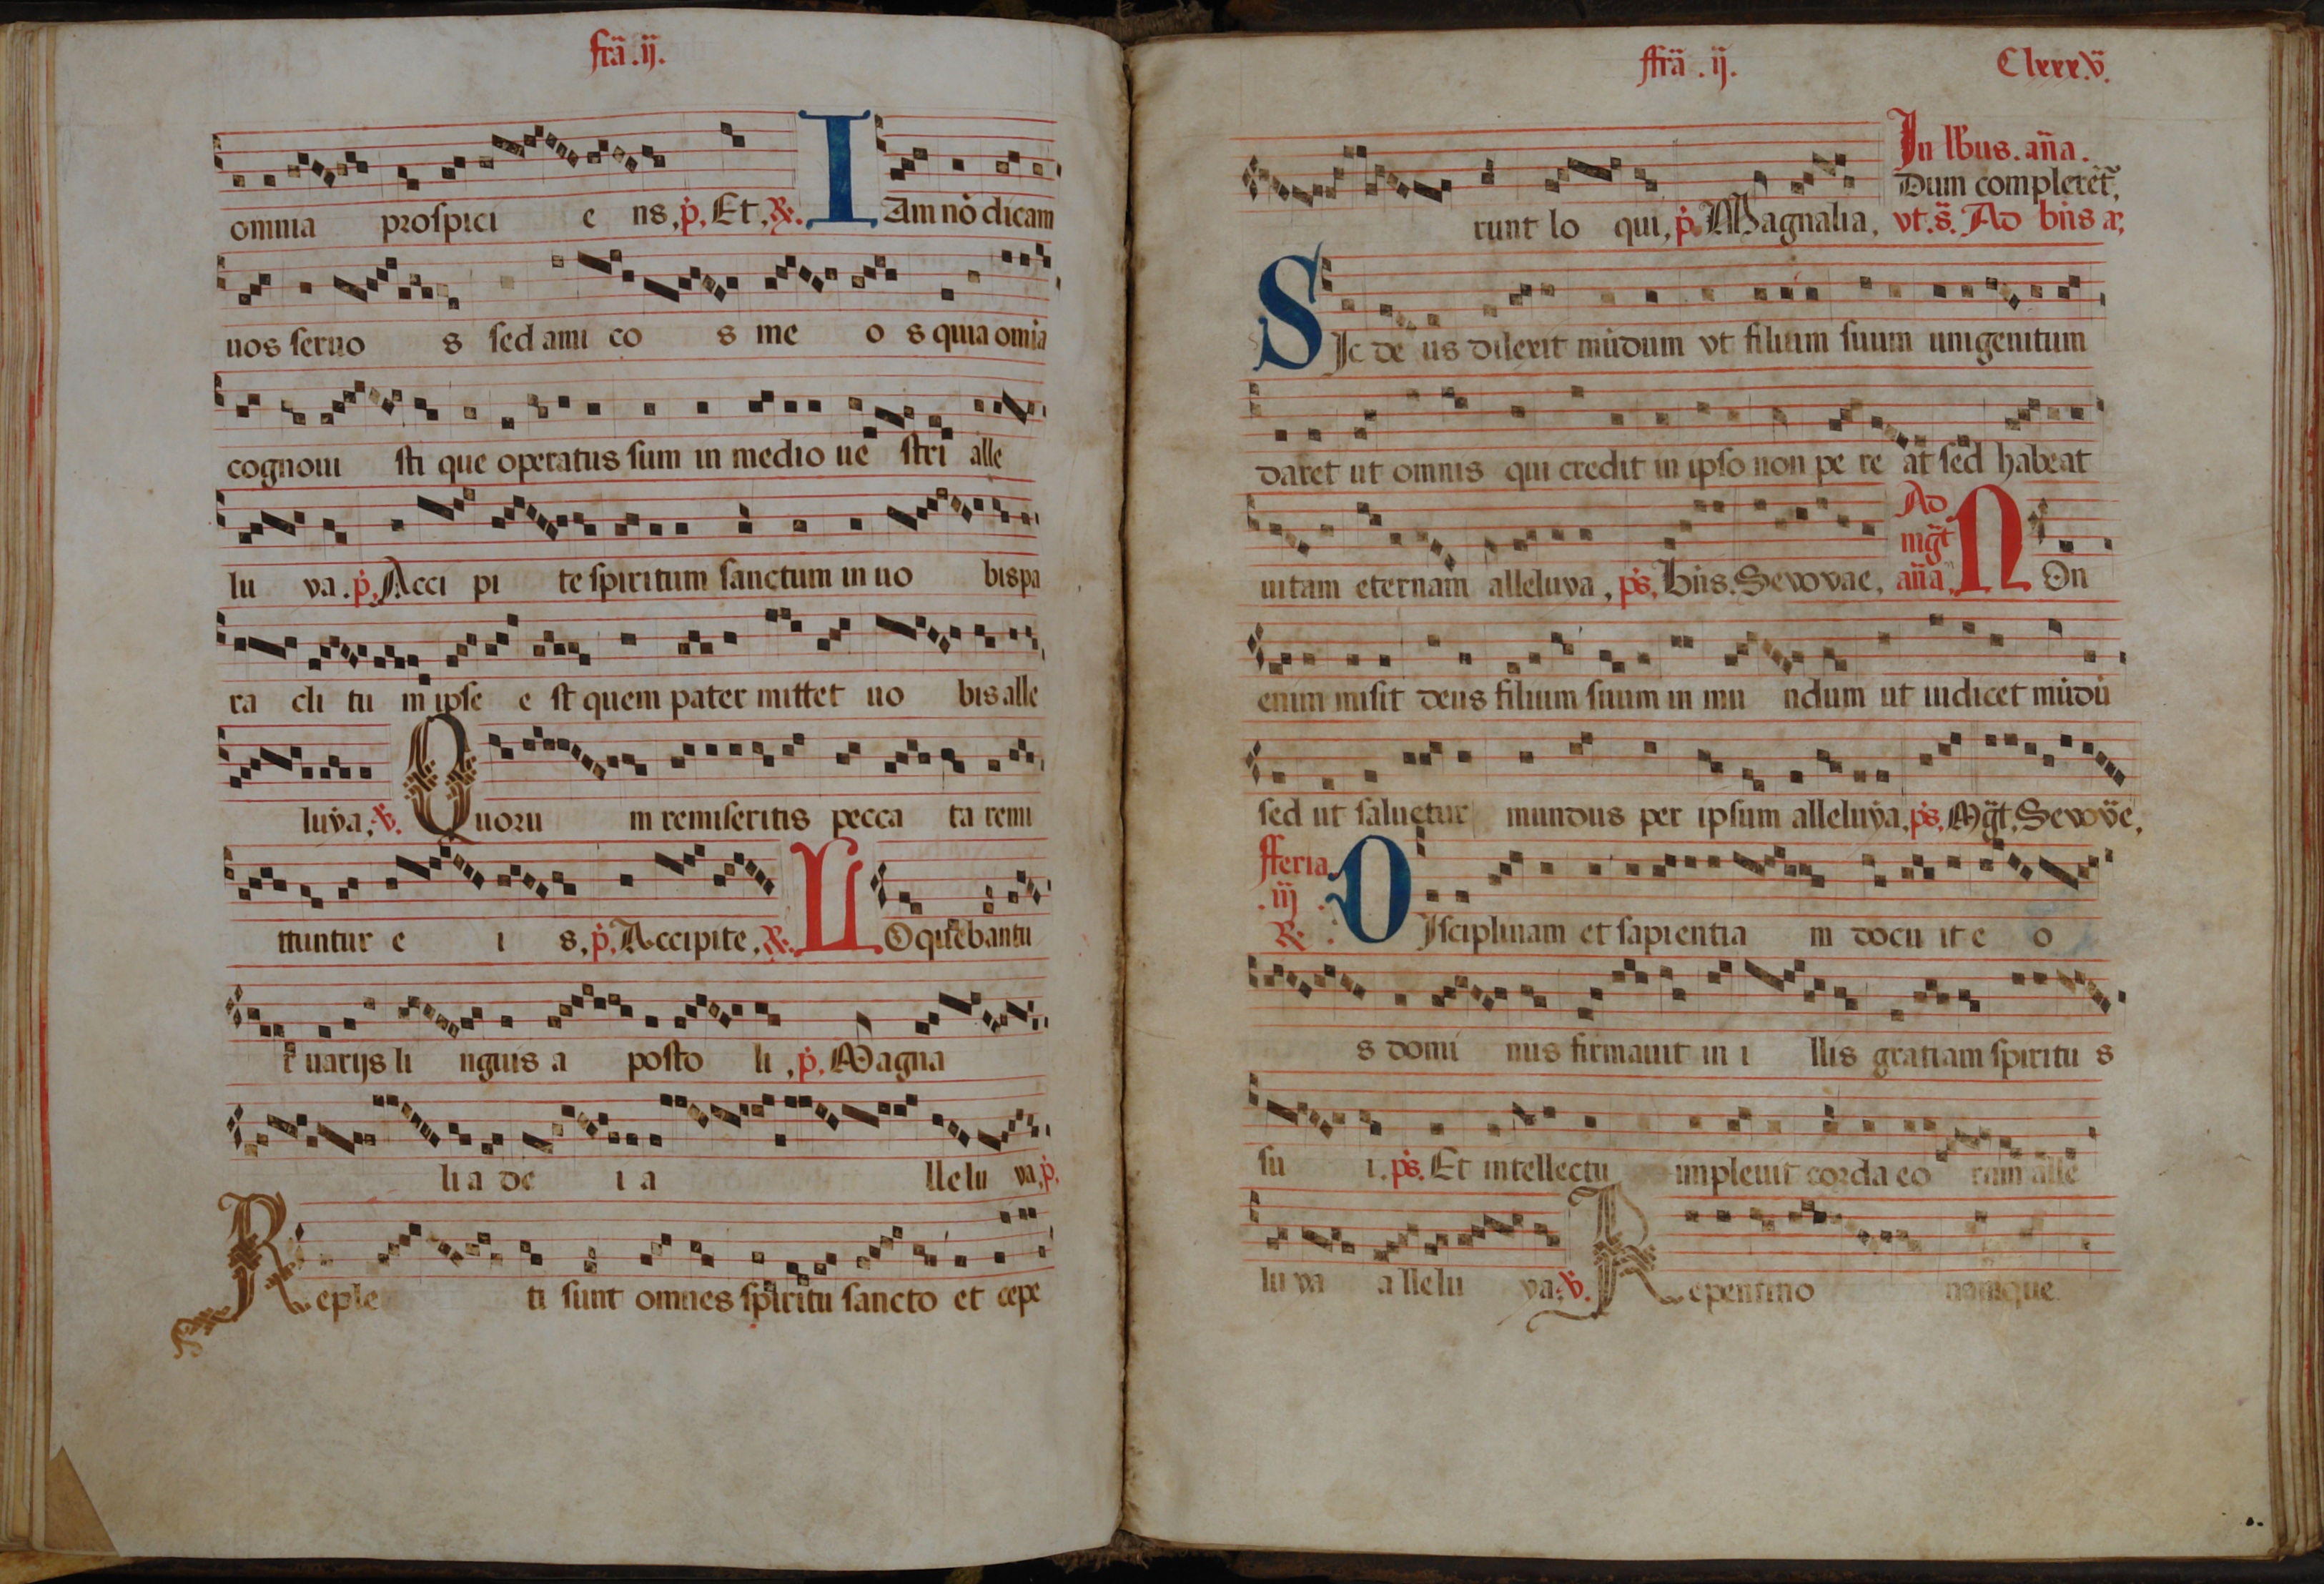 fra͞ .ij.
omnia prospici e ns, p̉. Et, ℟. I Am nō dicam
uos seruo s sed ami co s me o s quia om̄ia
cognoui sti que operatus sum in medio ue stri alle
lu ya. p̉. Acci pi te spiritum sanctum in uo bis pa
ra cli tu m ipse e st quem pater mittet uo bis alle
luya, ℣. Quoru m remiseritis pecca ta remi
ttuntur e i s, p̉. Accipite, ℟. L Oquēbantu
r uarijs li nguis a posto li, p̉. Magna
lia de i a llelu ya, p̉.
Reple ti sunt omnes spiritu sancto et cepe
ffra͞ .ij. Clxxxv.
In lb̄us. an̄a.
runt lo qui, p̉. Magnalia, Dum compleret̄,
vt. s̄. Ad bn̄s a;
S Ic de us dilexit mūdum vt filium suum unigenitum
daret ut omnis qui credit in ipso non pe re at sed habeat
uitam eternam alleluya, ps̄. Bn̄s. Sevovae, Ad mḡt an̄a. N On
enim misit deus filium suum in mu ndum ut iudicet mūdū
sed ut saluetur mundus per ipsum alleluya, ps̄. Mḡt. Sevov̄e,
fferia .iij. ℟. D Isciplinam et sapientia m docu it e o
s domi nus firmauit in i llis gratiam spiritu s
su i. ps̄. Et intellectu impleuit corda eo rum alle
lu ya a llelu ya: ℣. Repentino namque